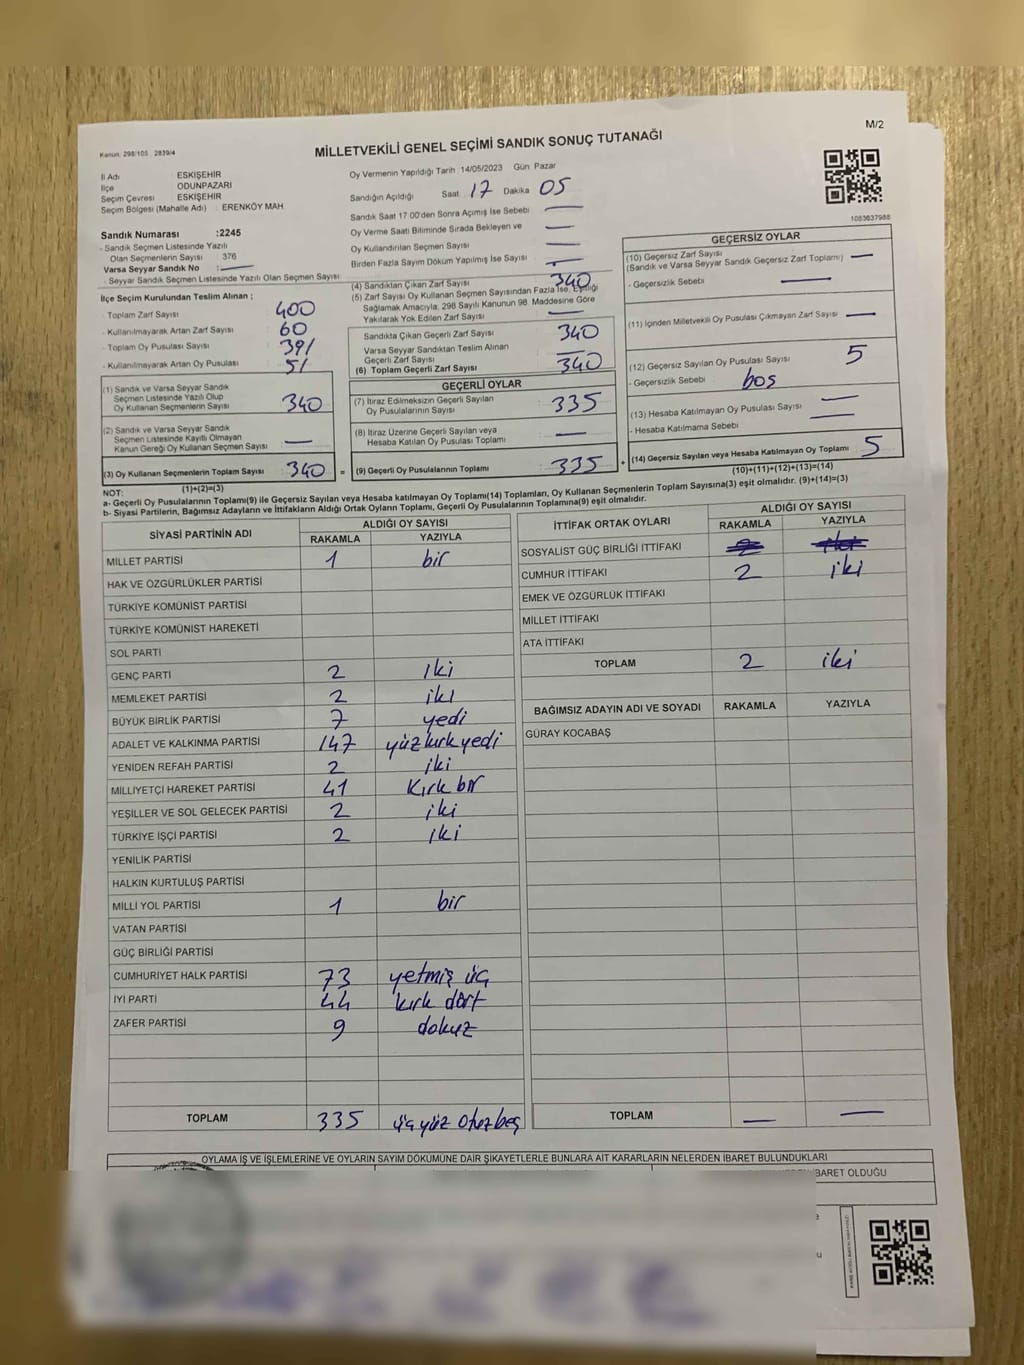 M/2
Kanun: 298/105 2839/4
MİLLETVEKİLİ GENEL SEÇİMİ SANDIK SONUÇ TUTANAĞI
İl Adı : ESKİŞEHİR
İlçe : ODUNPAZARI
Seçim Çevresi : ESKİŞEHİR
Seçim Bölgesi (Mahalle Adı) : ERENKÖY MAH
Sandık Numarası :2245
- Sandık Seçmen Listesinde Yazılı
Olan Seçmenlerin Sayısı 376
Varsa Seyyar Sandık No :
- Seyyar Sandık Seçmen Listesinde Yazılı Olan Seçmen Sayısı :
İlçe Seçim Kurulundan Teslim Alınan ;
- Toplam Zarf Sayısı 400
- Kullanılmayarak Artan Zarf Sayısı 60
- Toplam Oy Pusulası Sayısı 391
- Kullanılmayarak Artan Oy Pusulası 51
(1) Sandık ve Varsa Seyyar Sandık
Seçmen Listesinde Yazılı Olup
Oy Kullanan Seçmenlerin Sayısı 340
(2) Sandık ve Varsa Seyyar Sandık
Seçmen Listesinde Kayıtlı Olmayan
Kanun Gereği Oy Kullanan Seçmen Sayısı —
(3) Oy Kullanan Seçmenlerin Toplam Sayısı 340 =
(1)+(2)=(3)
Oy Vermenin Yapıldığı Tarih :14/05/2023 Gün Pazar
Sandığın Açıldığı Saat 17 Dakika 05
Sandık Saat 17.00'den Sonra Açımış İse Sebebi —
Oy Verme Saati Bitiminde Sırada Bekleyen ve —
Oy Kullandırılan Seçmen Sayısı —
Birden Fazla Sayım Döküm Yapılmış İse Sayısı —
(4) Sandıktan Çıkan Zarf Sayısı 340
(5) Zarf Sayısı Oy Kullanan Seçmen Sayısından Fazla İse, Eşitliği
Sağlamak Amacıyla; 298 Sayılı Kanunun 98. Maddesine Göre
Yakılarak Yok Edilen Zarf Sayısı —
Sandıkta Çıkan Geçerli Zarf Sayısı 340
Varsa Seyyar Sandıktan Teslim Alınan
Geçerli Zarf Sayısı —
(6) Toplam Geçerli Zarf Sayısı 340
GEÇERLİ OYLAR
(7) İtiraz Edilmeksizin Geçerli Sayılan
Oy Pusulalarının Sayısı 335
(8) İtiraz Üzerine Geçerli Sayılan veya
Hesaba Katılan Oy Pusulası Toplamı —
(9) Geçerli Oy Pusulalarının Toplamı 335 +
1083637988
GEÇERSİZ OYLAR
(10) Geçersiz Zarf Sayısı
(Sandık ve Varsa Seyyar Sandık Geçersiz Zarf Toplamı) —
- Geçersizlik Sebebi —
(11) İçinden Milletvekili Oy Pusulası Çıkmayan Zarf Sayısı —
(12) Geçersiz Sayılan Oy Pusulası Sayısı 5
- Geçersizlik Sebebi boş
(13) Hesaba Katılmayan Oy Pusulası Sayısı —
- Hesaba Katılmama Sebebi —
(14) Geçersiz Sayılan veya Hesaba Katılmayan Oy Toplamı 5
(10)+(11)+(12)+(13)=(14)
NOT:
a- Geçerli Oy Pusulalarının Toplamı(9) ile Geçersiz Sayılan veya Hesaba katılmayan Oy Toplamı(14) Toplamları, Oy Kullanan Seçmenlerin Toplam Sayısına(3) eşit olmalıdır. (9)+(14)=(3)
b- Siyasi Partilerin, Bağımsız Adayların ve İttifakların Aldığı Ortak Oyların Toplamı, Geçerli Oy Pusulalarının Toplamına(9) eşit olmalıdır.
SİYASİ PARTİNİN ADI ALDIĞI OY SAYISI
RAKAMLA YAZIYLA
MİLLET PARTİSİ 1 bir
HAK VE ÖZGÜRLÜKLER PARTİSİ
TÜRKİYE KOMÜNİST PARTİSİ
TÜRKİYE KOMÜNİST HAREKETİ
SOL PARTİ
GENÇ PARTİ 2 iki
MEMLEKET PARTİSİ 2 iki
BÜYÜK BİRLİK PARTİSİ 7 yedi
ADALET VE KALKINMA PARTİSİ 147 yüzkırkyedi
YENİDEN REFAH PARTİSİ 2 iki
MİLLİYETÇİ HAREKET PARTİSİ 41 Kırk bir
YEŞİLLER VE SOL GELECEK PARTİSİ 2 iki
TÜRKİYE İŞÇİ PARTİSİ 2 iki
YENİLİK PARTİSİ
HALKIN KURTULUŞ PARTİSİ
MİLLİ YOL PARTİSİ 1 bir
VATAN PARTİSİ
GÜÇ BİRLİĞİ PARTİSİ
CUMHURİYET HALK PARTİSİ 73 yetmiş üç
İYİ PARTİ 44 kırk dört
ZAFER PARTİSİ 9 dokuz
TOPLAM 335 üçyüz otuzbeş
İTTİFAK ORTAK OYLARI ALDIĞI OY SAYISI
RAKAMLA YAZIYLA
SOSYALİST GÜÇ BİRLİĞİ İTTİFAKI
CUMHUR İTTİFAKI 2 iki
EMEK VE ÖZGÜRLÜK İTTİFAKI
MİLLET İTTİFAKI
ATA İTTİFAKI
TOPLAM 2 iki
BAĞIMSIZ ADAYIN ADI VE SOYADI RAKAMLA YAZIYLA
GÜRAY KOCABAŞ
TOPLAM — —
OYLAMA İŞ VE İŞLEMLERİNE VE OYLARIN SAYIM DÖKÜMÜNE DAİR ŞİKAYETLERLE BUNLARA AİT KARARLARIN NELERDEN İBARET BULUNDUKLARI
İBARET OLDUĞU